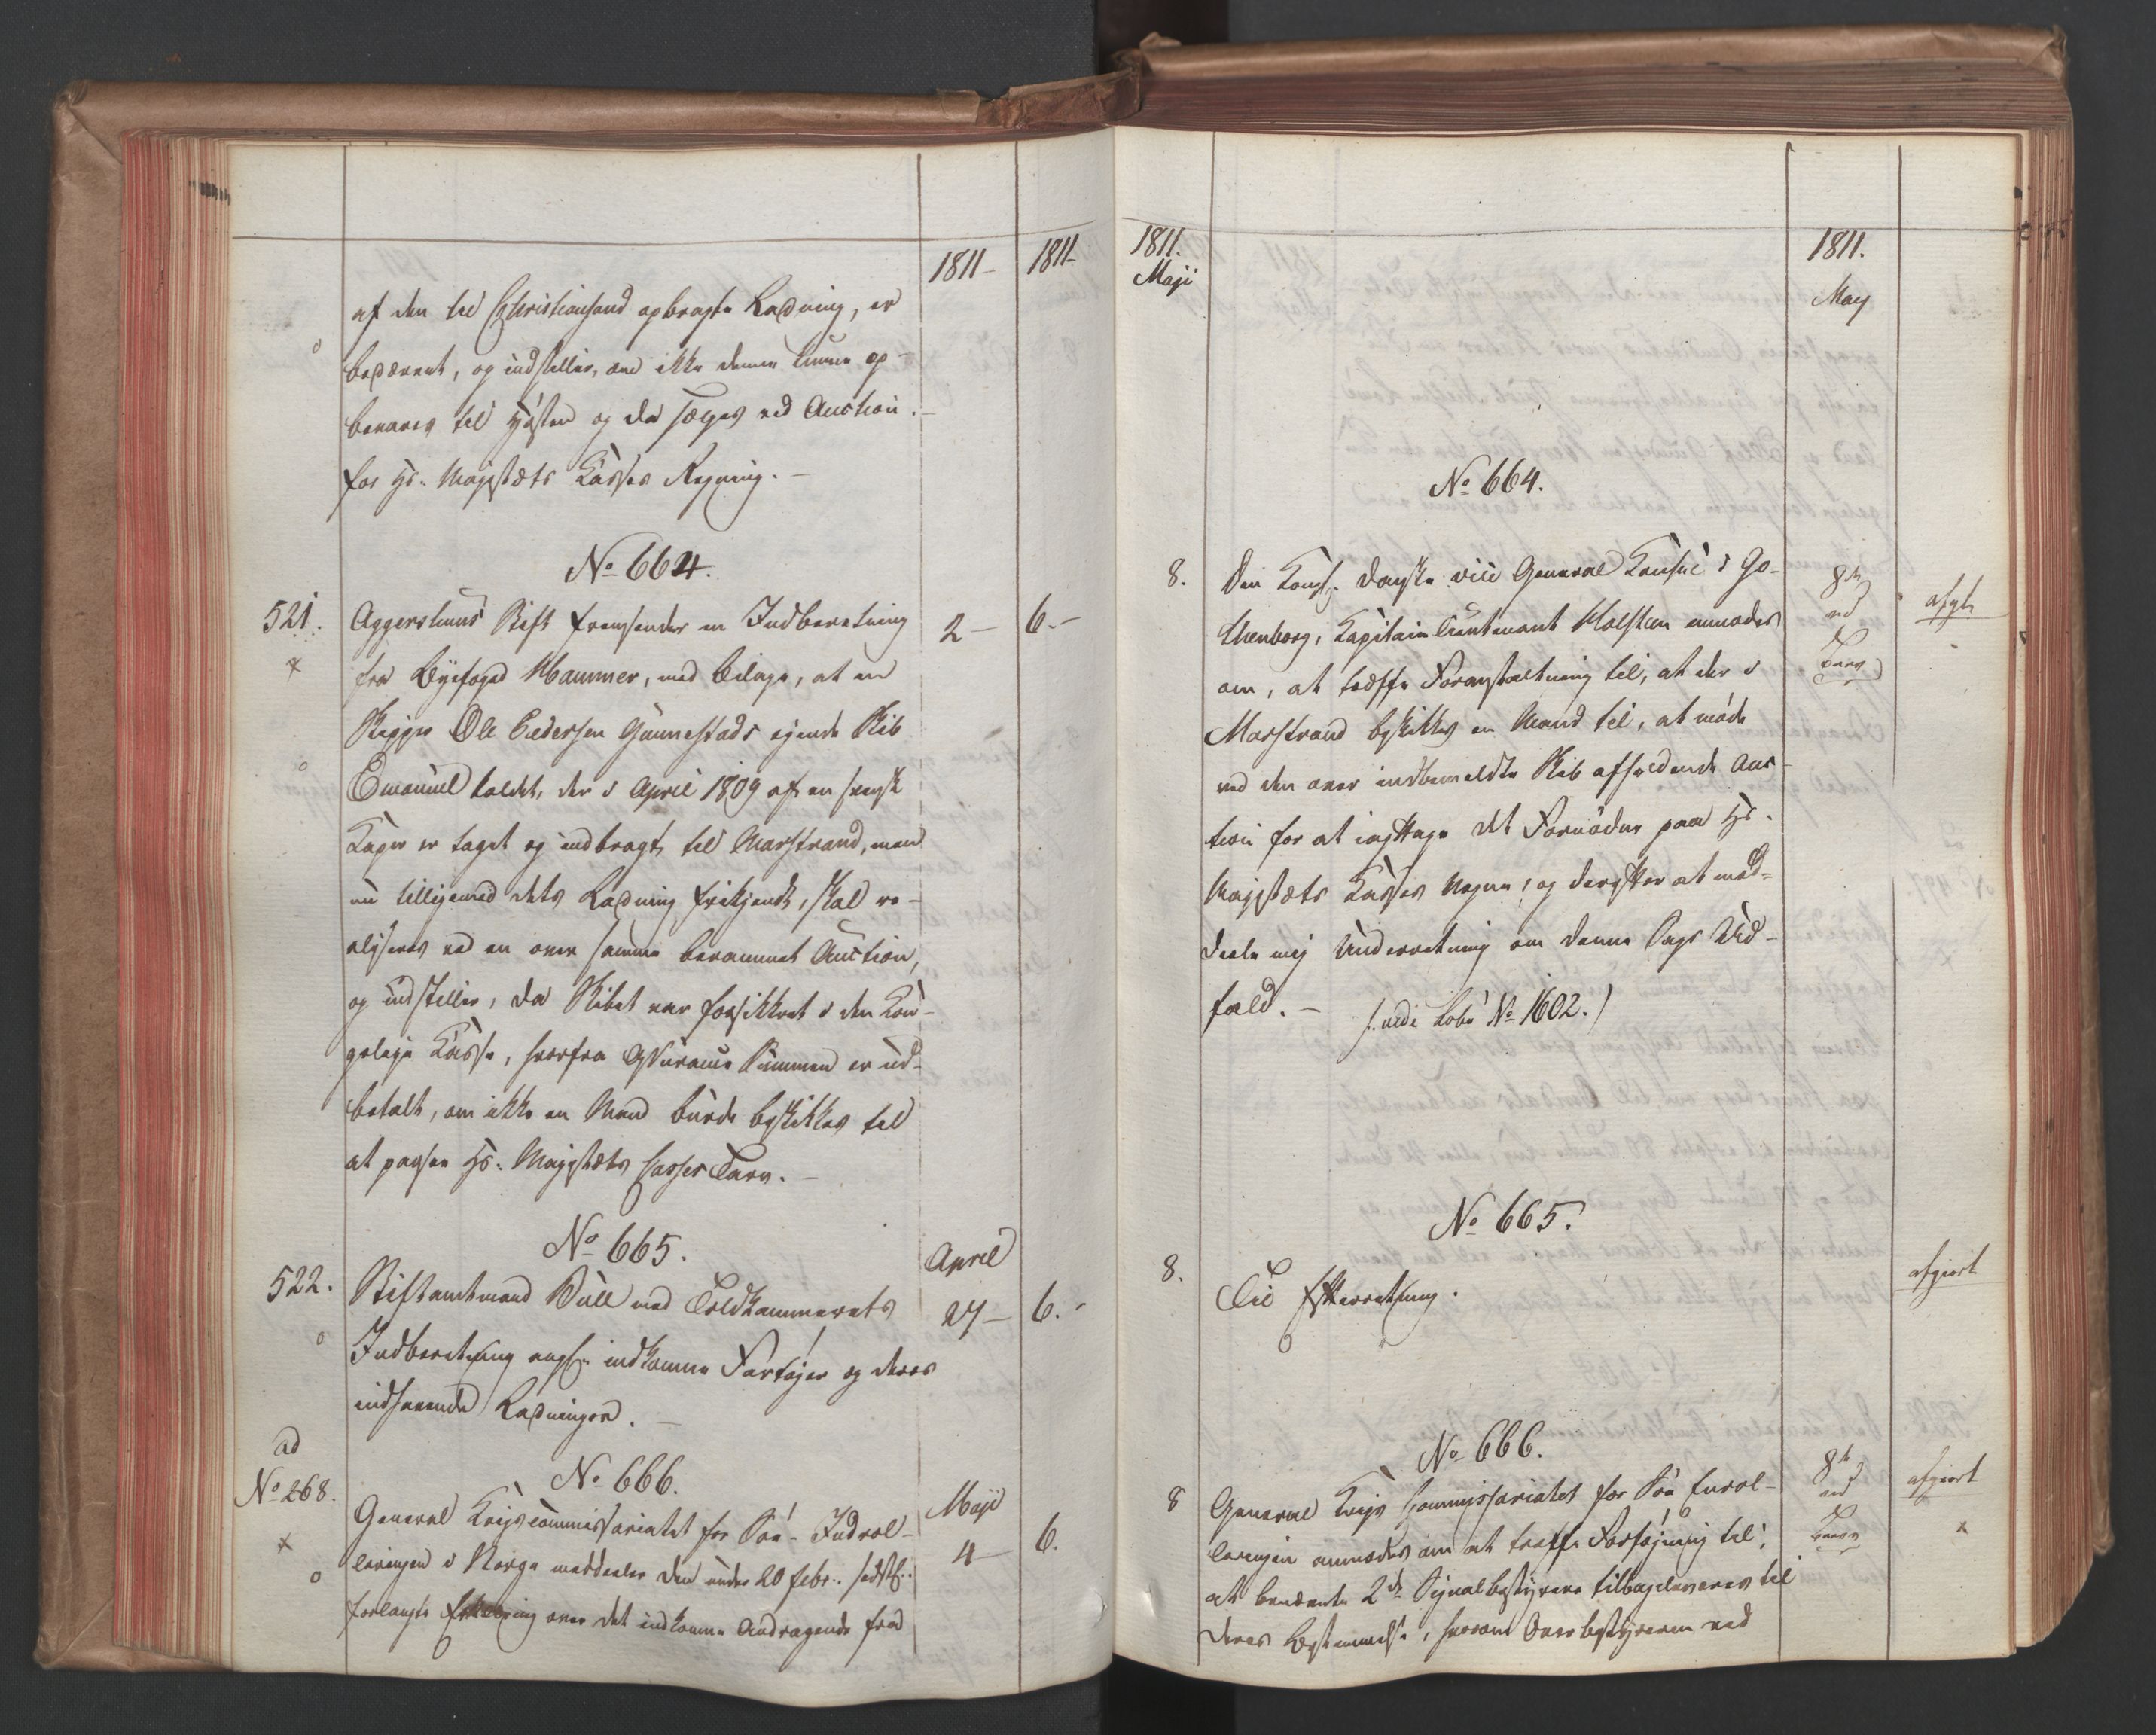 1811 –
1811 –
af den til Christiansand opbragte Ladning, er
bedærvet, og indstiller, om ikke denne kunne op-
bevares til Høsten og da sælges ved Auction
for Hs. Majestæts Kasses Regning. –
No 664.
521.
Aggershuus Stift fremsender en Indberetning
2 –
6. –
fra Byefoged Hammer, med Bilage, at en
Skipper Ole Pedersen Gunnestads eiende Skib
Emanuel kaldet, der i April 1809 af en svensk
Kaper er taget og indbragt til Marstrand, men
nu tilligemed dets Ladning frikjendt, skal re-
aliseres ved en over samme berammet Auction,
og indstiller, da Skibet var forsikkret i den Kon-
gelige Kasse, hvorfra Assurance Summen er ud-
betalt, om ikke en Mand burde beskikkes til
at passe Hs. Majestæts Casses Tarv. –
No 665.
April
522.
Stiftamtmand Bull med Toldkammerets
27 –
6. –
Indberetning angl. indkomne Fartøjer og deres
indhavende Ladninger. –
ad
No 268.
No 666.
Maji
General Krigscommissariatet for Søe-Indrol-
4 –
6.
leringen i Norge meddeeler den under 20 febr. sidstl.
forlangte Erklæring over det indkomne Andragende fra
1811.
Maji
1811.
May
No 664.
8.
Den Kongl. Danske vice General Konsul i Go-
8de
afgt.
thenborg, Kapitain Lieutenant Holsten anmodes
ved
om, at træffe Foranstaltning til, at der i
Marstrand beskikkes en Mand til, at møde
ved den over indbemeldte Skib afholdende Auc-
tion for at iagttage det Fornødne paa Hs.
Majestæts Kasses Vegne, og derefter at med-
deele mig Underretning om denne Sags Ud-
fald. –
(: vide Lobe No 1602. :)
No 665.
8.
Til Efterretning.
afgiort
No 666.
8
General Krigs Commissariatet for Søe Enrol-
8de
afgiort
leringen anmodes om at træffe Forføjning til,
ved
at benævnte 2de Signalbestyrere tilbageleveres til
deres Bestemmelse, hvorom Overbestyreren ved